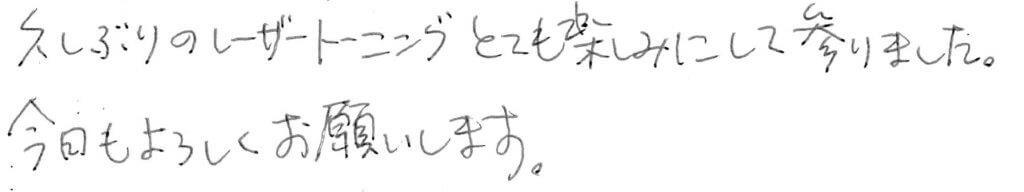 久しぶりのレーザートーニングとても楽しみにして参りました。
今日もよろしくお願いします。